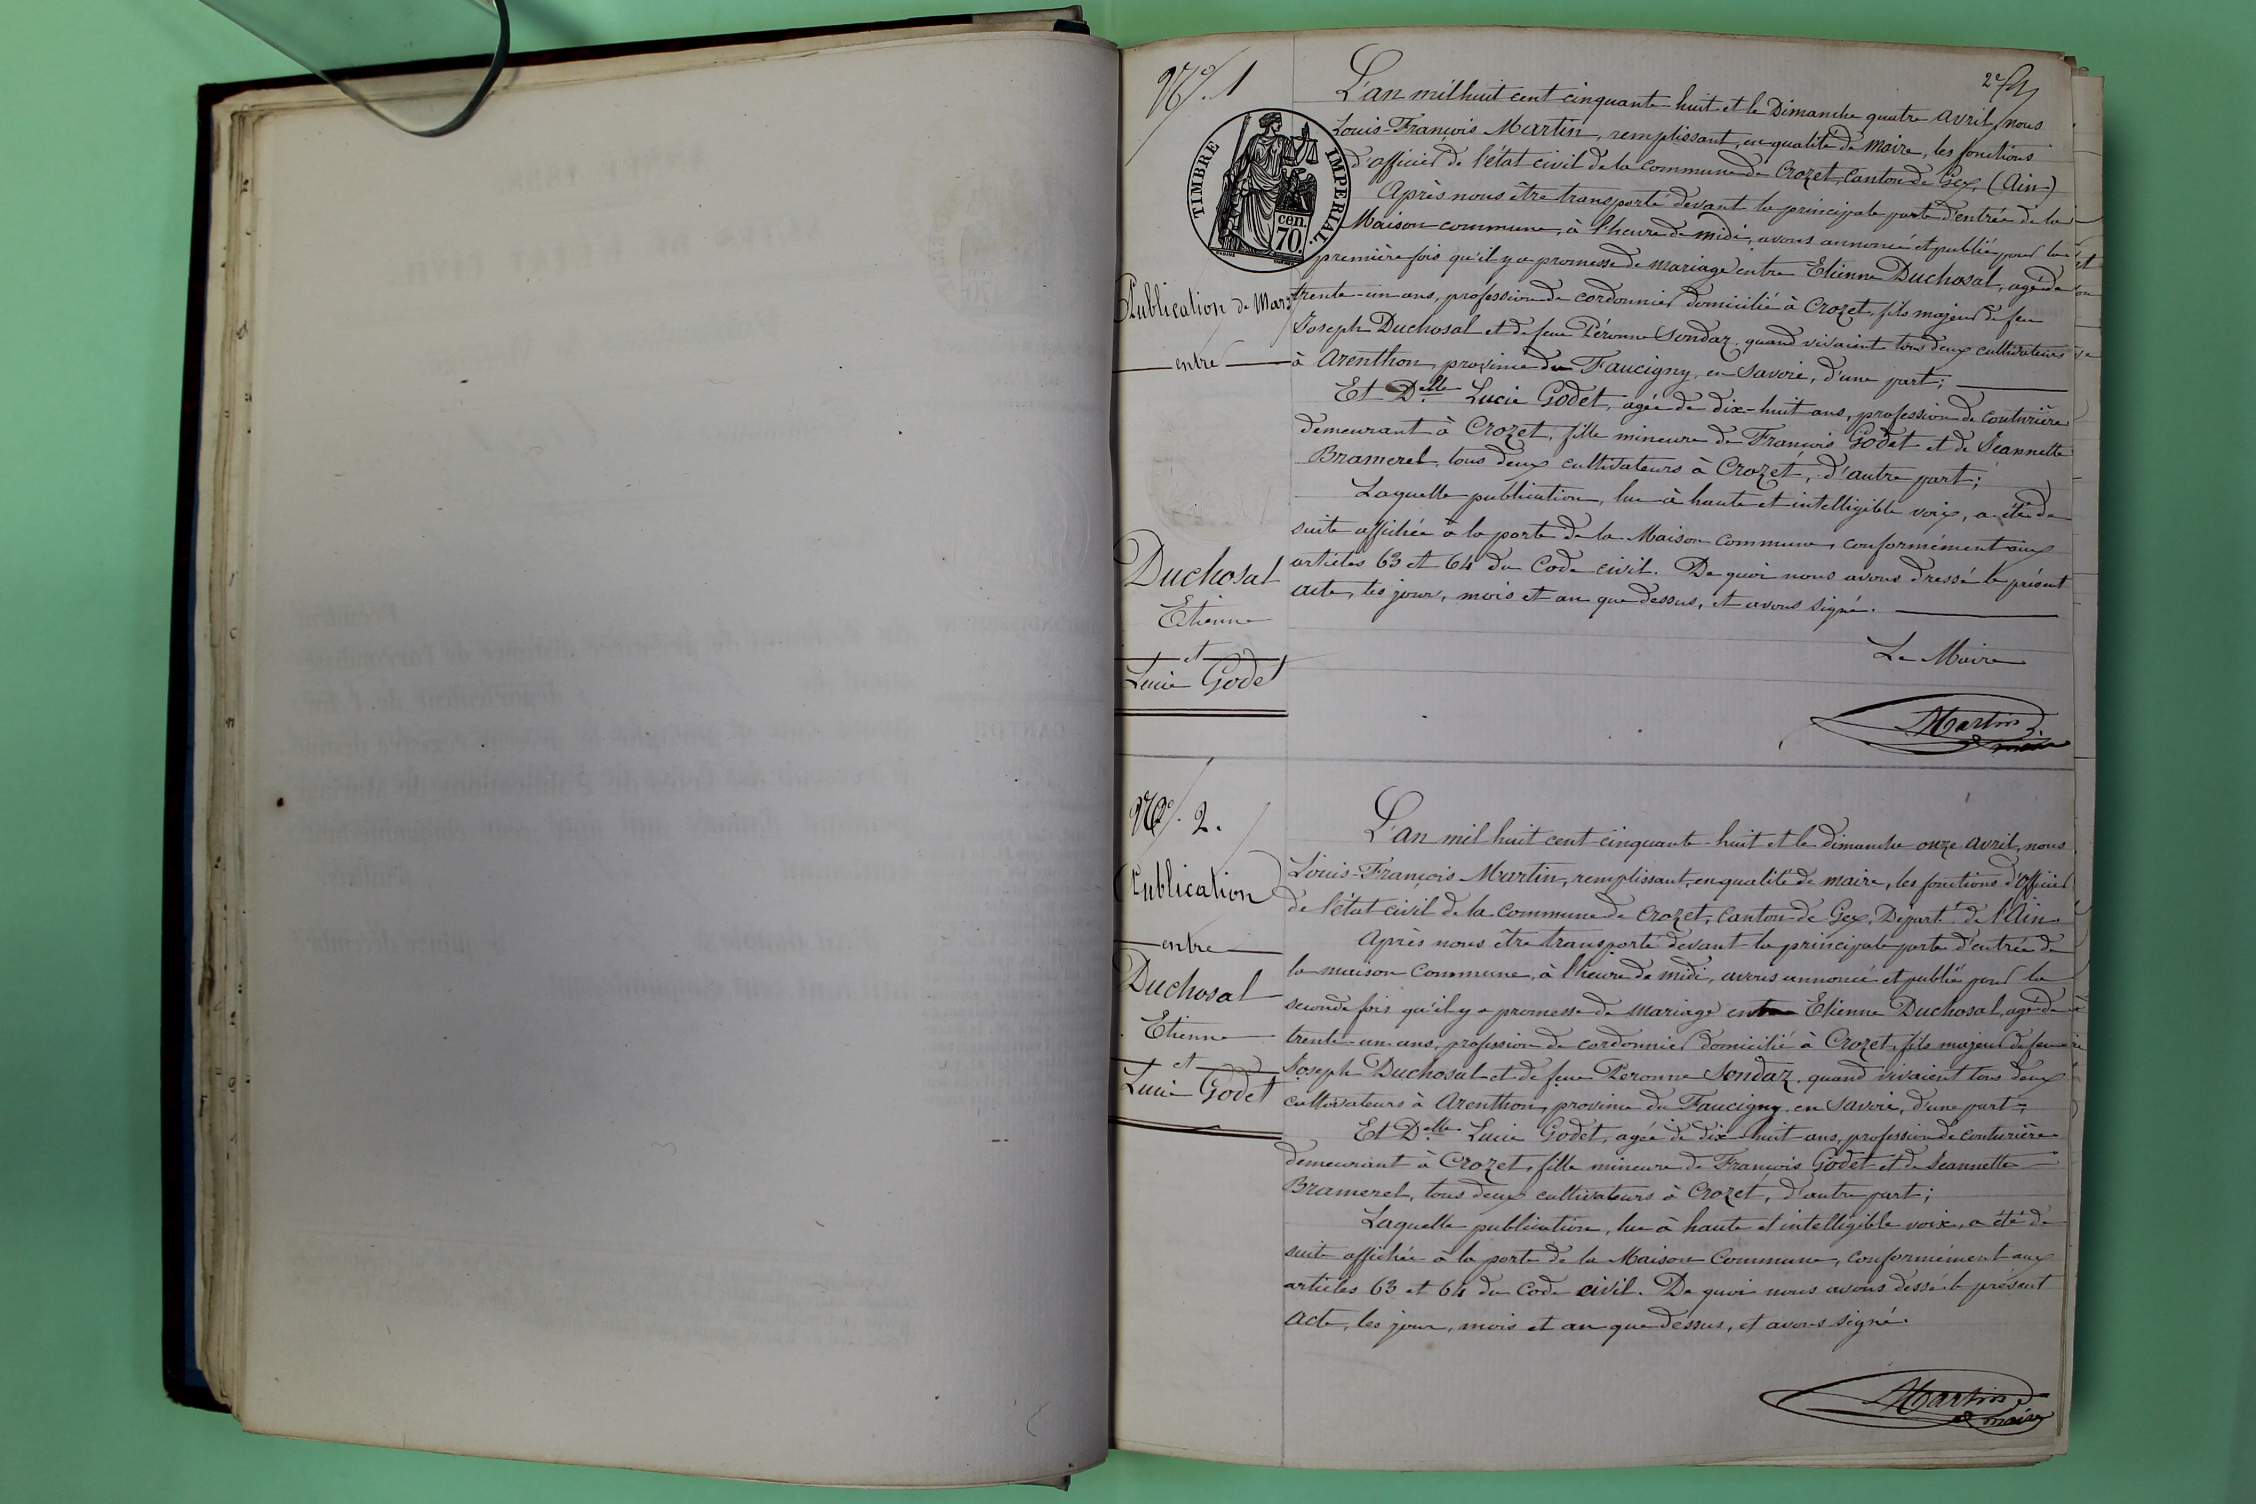 2e
No. 1
TIMBRE IMPERIAL.
cen.
70.
Publication de Mar.
entre
Duchosal
Etienne
et
Lucie Godet
L'an mil huit cent cinquante-huit et le Dimanche quatre avril, nous
Louis-François Martin, remplissant, en qualité de Maire, les fonctions
d'officier de l'état civil de la commune de Crozet, Canton de Gex, (Ain)
Après nous être transporté devant la principale porte d'entrée de la
Maison commune, à l'heure de midi, avons annoncé et publié pour la
première fois qu'il y a promesse de mariage entre Etienne Duchosal, agé de
trente-un ans, profession de cordonnier domicilié à Crozet, fils majeur de feu
Joseph Duchosal et de feue Péronne Sondaz, quand vivaient tous deux cultivateurs
à Arenthon, province du Faucigny, en Savoie, d'une part;
Et Delle Lucie Godet, agée de dix-huit ans, profession de couturière
demeurant à Crozet, fille mineure de François Godet et de Jeannette
Bramerel, tous deux cultivateurs à Crozet, d'autre part;
Laquelle publication, lue à haute et intelligible voix, a été de
suite affichée à la porte de la Maison commune, conformément aux
articles 63 et 64 du Code civil. De quoi nous avons dressé le présent
acte, les jour, mois et an que dessus, et avons signé.
Le Maire
Martin
maire
No. 2.
Publication
entre
Duchosal
Etienne
et
Lucie Godet
L'an mil huit cent cinquante-huit et le dimanche onze avril, nous
Louis-François Martin, remplissant, en qualité de maire, les fonctions d'officier
de l'état civil de la commune de Crozet, Canton de Gex, Départ.t de l'Ain.
Après nous être transporté devant la principale porte d'entrée de
la maison commune, à l'heure de midi, avons annoncé et publié pour la
seconde fois qu'il y a promesse de mariage entre Etienne Duchosal, agé de
trente-un ans, profession de cordonnier domicilié à Crozet, fils majeur de feu
Joseph Duchosal et de feue Peronne Sondaz, quand vivaient tous deux
cultivateurs à Arenthon, province du Faucigny, en Savoie, d'une part;
Et Delle Lucie Godet, agée de dix-huit ans, profession de couturière
demeurant à Crozet, fille mineure de François Godet et de Jeannette
Bramerel, tous deux cultivateurs à Crozet, d'autre part;
Laquelle publication, lue à haute et intelligible voix, a été de
suite affichée à la porte de la Maison Commune, conformément aux
articles 63 et 64 du Code civil. De quoi nous avons dessé le présent
acte, les jour, mois et an que dessus, et avons signé.
Martin
maire